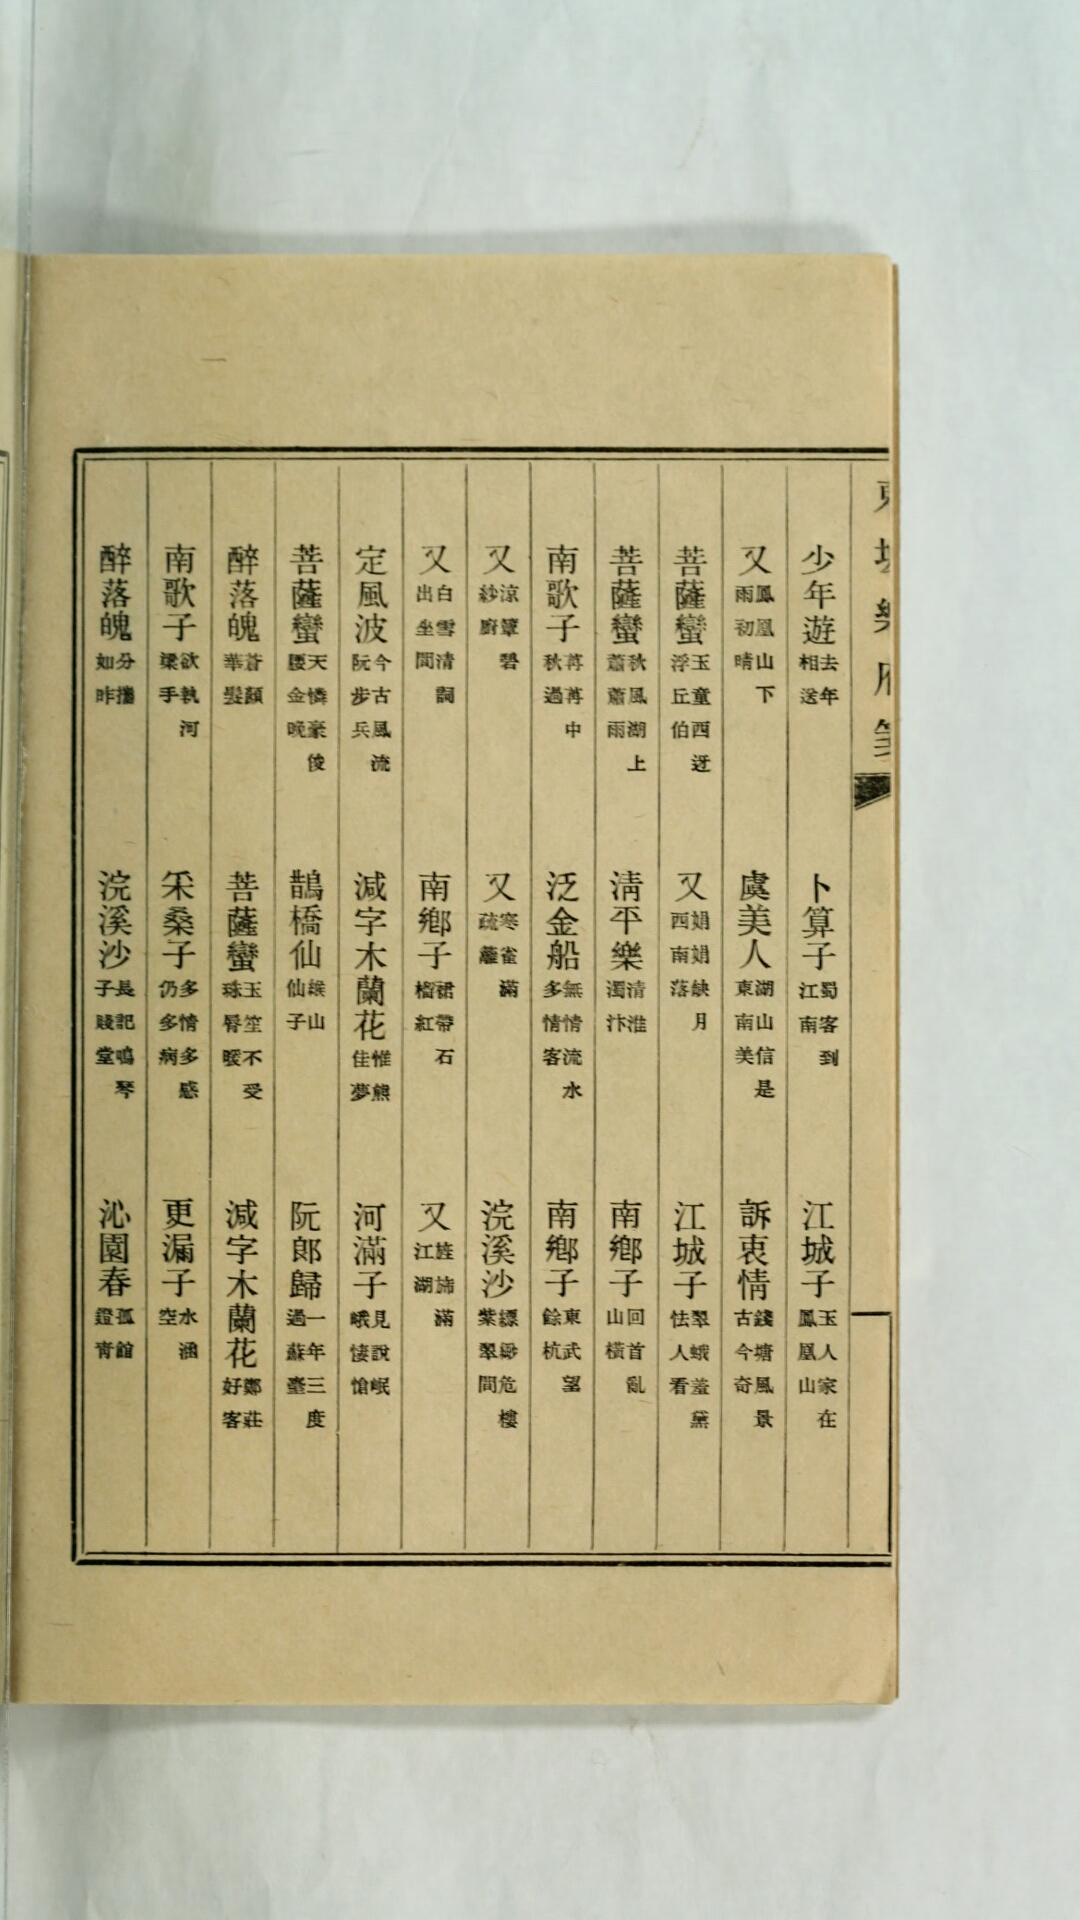 東坡樂府箋
少年遊 去年相送 卜算子 蜀客到江南 江城子 玉人家在鳳凰山
又 鳳凰山下雨初晴 虞美人 湖山信是東南美 訴衷情 錢塘風景古今奇
菩薩蠻 玉童西迓浮丘伯 又 娟娟缺月西南落 江城子 翠蛾羞黛怯人看
菩薩蠻 秋風湖上蕭蕭雨 淸平樂 清淮濁汴 南鄉子 回首亂山橫
南歌子 苒苒中秋過 泛金船 無情流水多情客 南鄉子 東武望餘杭
又 涼簟碧紗廚 又 寒雀滿疏籬 浣溪沙 縹緲危樓紫翠間
又 白雪清詞出坐間 南鄉子 裙帶石榴紅 又 旌旆滿江湖
定風波 今古風流阮步兵 減字木蘭花 惟熊佳夢 河滿子 見說岷峨悽愴
菩薩蠻 天憐豪俊腰金晚 鵲橋仙 緱山仙子 阮郎歸 一年三度過蘇臺
醉落魄 蒼顏華髮 菩薩蠻 玉笙不受珠脣暖 減字木蘭花 鄭莊好客
南歌子 欲執河梁手 采桑子 多情多感仍多病 更漏子 水涵空
醉落魄 分攜如昨 浣溪沙 長記鳴琴子賤堂 沁園春 孤館鐙青